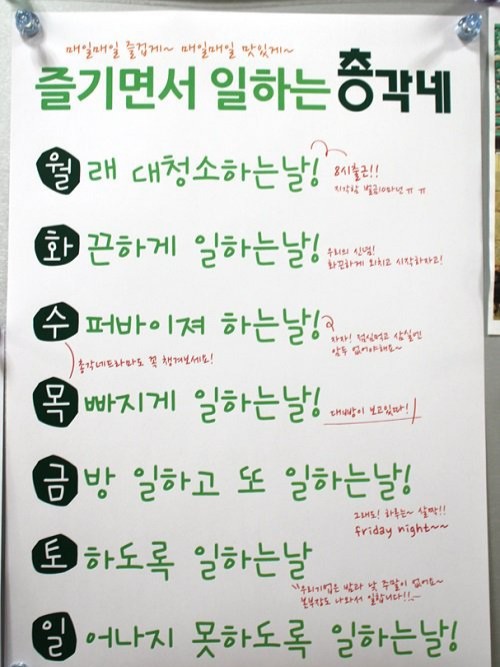 매일매일 즐겁게~ 매일매일 맛있게~
즐기면서 일하는 총각네
월 래 대청소하는날!
8시출근!!
지각함 벌금10파넌 ㅠㅠ
화 끈하게 일하는날!
우리의 신념!
화끈하게 외치고 시작하자고!
수 퍼바이져 하는날!
자자! 점심먹고 삼실엔
암두 없어야해요~
총각네드라마도 꼭 챙겨보세요!
목 빠지게 일하는날!
대빵이 보고있따!
금 방 일하고 또 일하는날!
그래도! 하루는~ 살짝!!
friday night~~
토 하도록 일하는날
"우리기업은 밤과 낮 주말이 없어요~
본부장도 나와서 일합니다!!~
일 어나지 못하도록 일하는날!